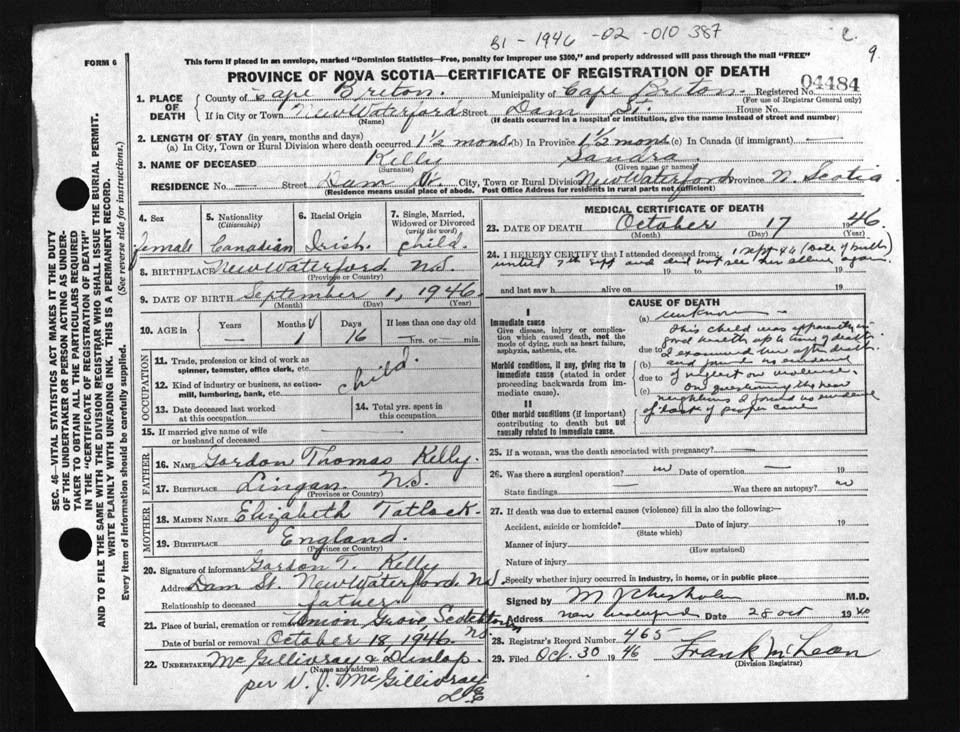 B1 - 1946 - 02 - 010 387
C.
9.
FORM 6
This form if placed in an envelope, marked "Dominion Statistics—Free, penalty for improper use $300," and properly addressed will pass through the mail "FREE"
PROVINCE OF NOVA SCOTIA—CERTIFICATE OF REGISTRATION OF DEATH
04484
1. PLACE OF DEATH County of Cape Breton. Municipality of Cape Breton. Registered No.
(For use of Registrar General only)
If in City or Town New Waterford Street Dam St. House No.
(Name) (If death occurred in a hospital or institution, give the name instead of street and number)
2. LENGTH OF STAY (in years, months and days)
(a) In City, Town or Rural Division where death occurred 1 1/2 mons. (b) In Province 1 1/2 mons. (c) In Canada (if immigrant) —
3. NAME OF DECEASED Kelly Sandra.
(Surname) (Given name or names)
RESIDENCE No. — Street Dam St. City, Town or Rural Division New Waterford Province N. Scotia
(Residence means usual place of abode. Post Office Address for residents in rural parts not sufficient)
4. Sex
female
5. Nationality
(Citizenship)
Canadian
6. Racial Origin
Irish.
7. Single, Married, Widowed or Divorced
(write the word)
child.
8. BIRTHPLACE New Waterford N.S.
(Province or Country)
9. DATE OF BIRTH September 1, 1946.
(Month) (Day) (Year)
10. AGE in Years Months Days If less than one day
— 1 16 hrs. or — min.
OCCUPATION
11. Trade, profession or kind of work as spinner, teamster, office clerk, etc.
12. Kind of industry or business, as cotton-mill, lumbering, bank, etc.
child.
13. Date deceased last worked at this occupation
14. Total yrs. spent in this occupation
15. If married give name of wife or husband of deceased —
FATHER
16. NAME Gordon Thomas Kelly.
17. BIRTHPLACE Lingan. N.S.
(Province or Country)
MOTHER
18. MAIDEN NAME Elizabeth Tatlock.
19. BIRTHPLACE England.
(Province or Country)
20. Signature of informant Gordon T. Kelly
Address Dam St. New Waterford N.S.
Relationship to deceased father.
21. Place of burial, cremation or removal Union Grove, Scotchtown N.S.
Date of burial or removal October 18, 1946.
22. UNDERTAKER McGillivray & Dunlap.
(Name and address)
per V. J. McGillivray
MEDICAL CERTIFICATE OF DEATH
23. DATE OF DEATH October 17 1946
(Month) (Day) (Year)
24. I HEREBY CERTIFY that I attended deceased from: 1 Sept 46 (date of birth)
until 7th Sept and did not see her alive again.
19 to 19
and last saw h alive on 19
CAUSE OF DEATH
I
Immediate cause
Give disease, injury or complication which caused death, not the mode of dying, such as heart failure, asphyxia, asthenia, etc.
Morbid conditions, if any, giving rise to immediate cause (stated in order proceeding backwards from immediate cause).
II
Other morbid conditions (if important) contributing to death but not causally related to immediate cause.
(a) unknown —
This child was apparently in
good health up to time of death
due to I examined her after death
(b) and found no evidence
due to of neglect or violence.
(c) On questioning the near
neighbors I found no evidence
of lack of proper care
25. If a woman, was the death associated with pregnancy? —
26. Was there a surgical operation? no Date of operation — 19
State findings — Was there an autopsy? no
27. If death was due to external causes (violence) fill in also the following:—
Accident, suicide or homicide? Date of injury 19
(State which)
Manner of injury
(How sustained)
Nature of injury
Specify whether injury occurred in industry, in home, or in public place
Signed by M J Chisholm M.D.
Address new waterford Date 28 oct 1940
28. Registrar's Record Number 465
29. Filed Oct. 30 1946 Frank McLean
(Division Registrar)
SEC. 46—VITAL STATISTICS ACT MAKES IT THE DUTY
OF THE UNDERTAKER OR PERSON ACTING AS UNDER-
TAKER TO OBTAIN ALL THE PARTICULARS REQUIRED
IN THE "CERTIFICATE OF REGISTRATION OF DEATH"
AND TO FILE THE SAME WITH THE DIVISION REGISTRAR WHO SHALL ISSUE THE BURIAL PERMIT.
WRITE PLAINLY WITH UNFADING INK. THIS IS A PERMANENT RECORD.
Every item of information should be carefully supplied. (See reverse side for instructions.)